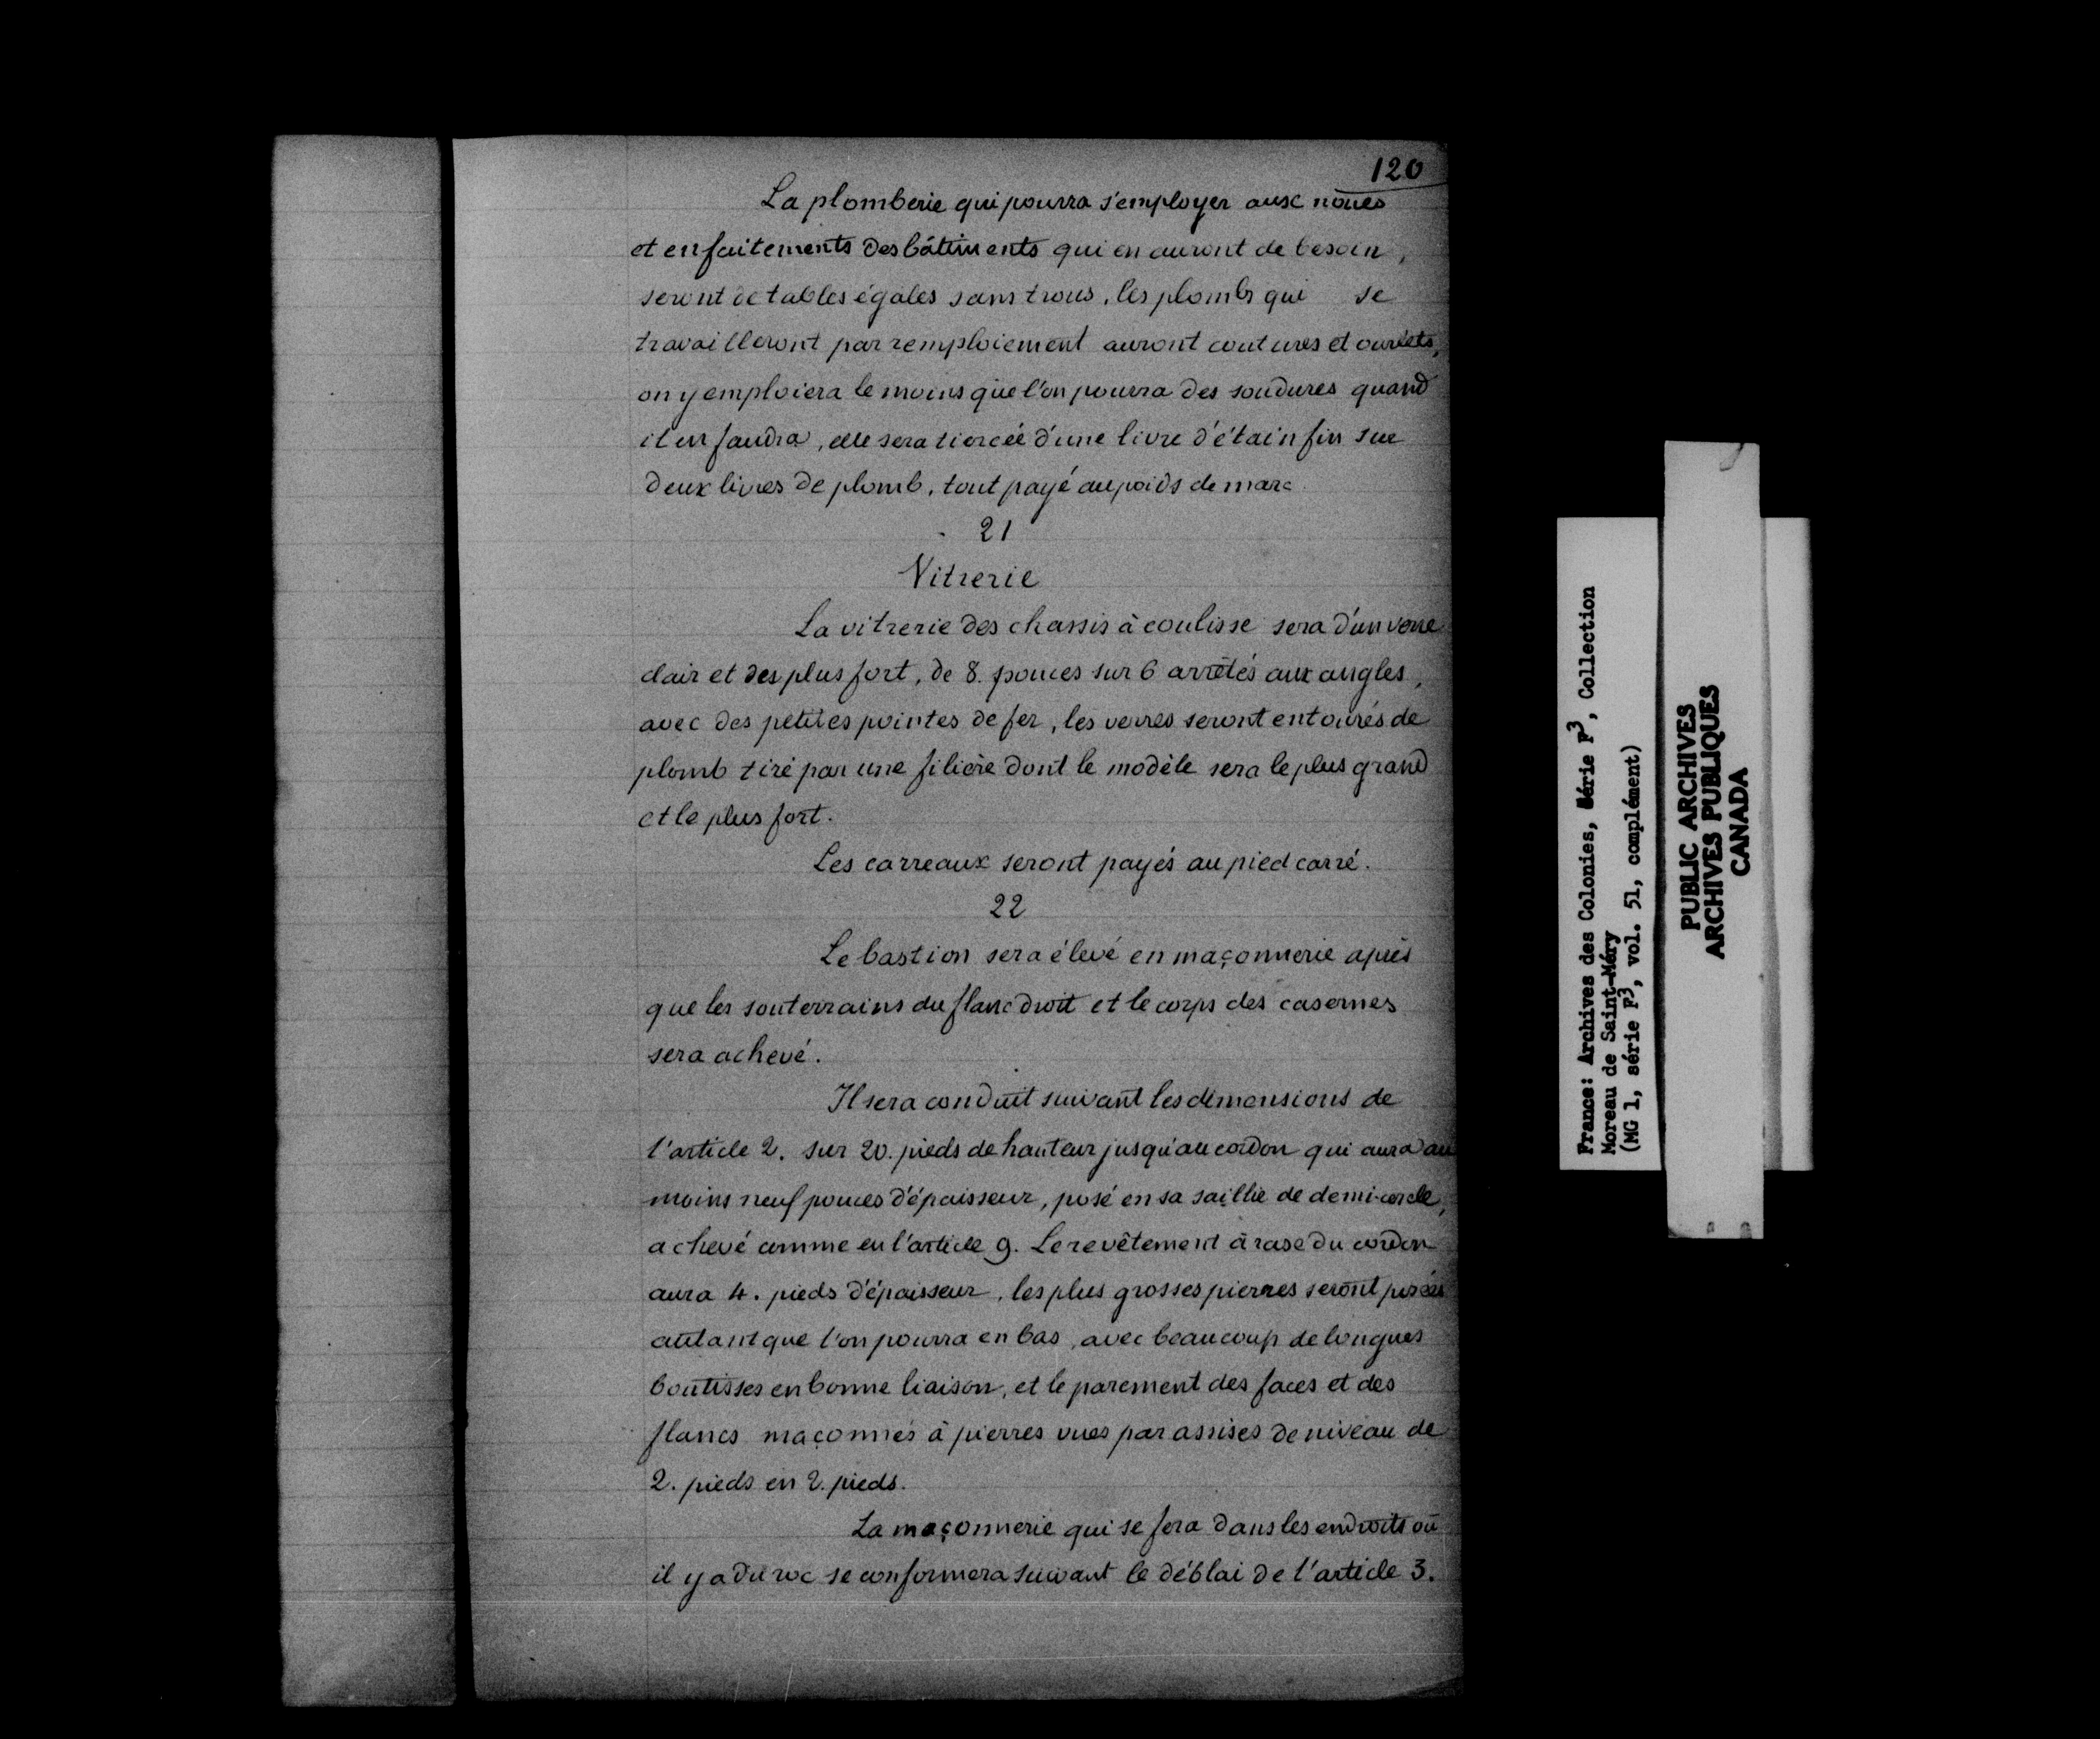 120
La plomberie qui pourra s'employer aux noues
et enfaitements des bâtiments qui en auront de besoin,
seront de tables égales sans trous, les plombs qui se
travailleront par remploiement auront coutures et ourlets,
on y emploiera le moins que l'on pourra des soudures quand
il en faudra, elle sera tiercée d'une livre d'étain fin sur
deux livres de plomb, tout payé au poids de marc.
21
Vitrerie
La vitrerie des chassis à coulisse sera d'un verre
clair et des plus fort, de 8. pouces sur 6 arrêtés aux angles,
avec des petites pointes de fer, les verres seront entourés de
plomb tiré par une filière dont le modèle sera le plus grand
et le plus fort.
Les carreaux seront payés au pied carré.
22
Le bastion sera élevé en maçonnerie après
que les souterrains du flanc droit et le corps des casernes
sera achevé.
Il sera conduit suivant les dimensions de
l'article 2. sur 20. pieds de hauteur jusqu'au cordon qui aura au
moins neuf pouces d'épaisseur, posé en sa saillie de demi-cercle,
achevé comme en l'article 9. Le revêtement à rase du cordon
aura 4. pieds d'épaisseur, les plus grosses pierres seront posées
autant que l'on pourra en bas, avec beaucoup de longues
boutisses en bonne liaison, et le parement des faces et des
flancs maçonnés à pierres vues par assises de niveau de
2. pieds en 2. pieds.
La maçonnerie qui se fera dans les endroits où
il y a du roc se conformera suivant le déblai de l'article 3.
France: Archives des Colonies, Série F³, Collection
Moreau de Saint-Méry
(MG 1, série F³, vol. 51, complément)
PUBLIC ARCHIVES
ARCHIVES PUBLIQUES
CANADA